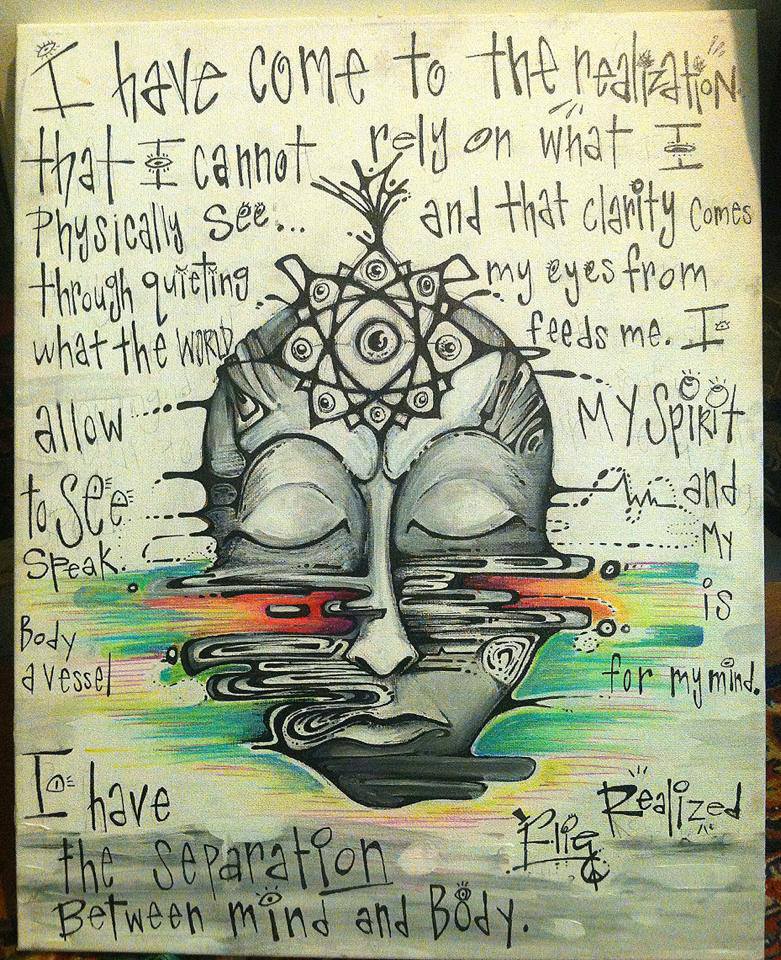 I have come to the realization
that I cannot rely on what I
Physically see... and that clarity comes
through quieting my eyes from
what the WORLD feeds me. I
allow MY SPirit
to SEe and
Speak. My
Body is
a vessel for my mind.
I have Realized
the Separation
Between mind and Body.
Elig